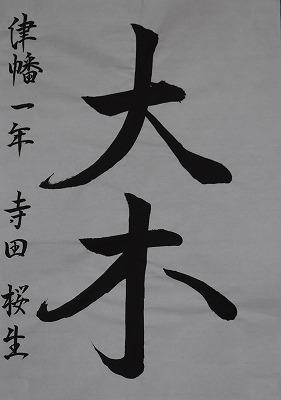 大木
津幡一年 寺田桜生